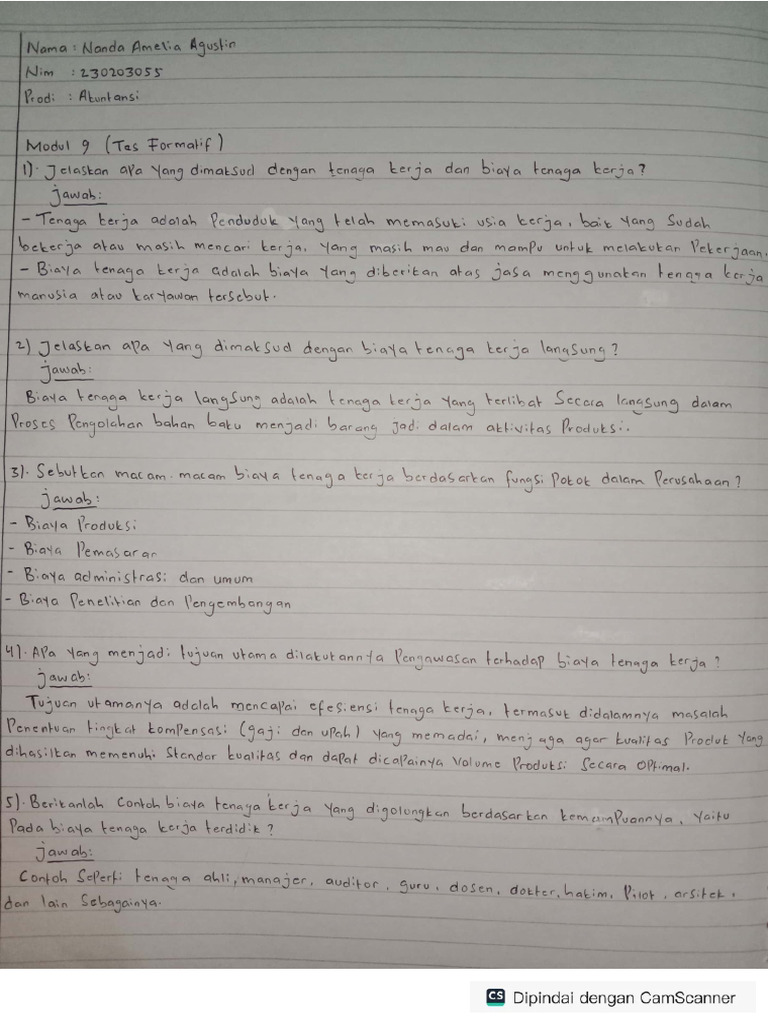 Nama : Nanda Amelia Agustin
Nim : 230203055
Prodi : Akuntansi
Modul 9 (Tes Formatif)
1). Jelaskan apa yang dimaksud dengan tenaga kerja dan biaya tenaga kerja?
jawab:
- Tenaga kerja adalah Penduduk yang telah memasuki usia kerja, baik yang sudah
bekerja atau masih mencari kerja, yang masih mau dan mampu untuk melakukan Pekerjaan.
- Biaya tenaga kerja adalah biaya yang diberikan atas jasa menggunakan tenaga kerja
manusia atau karyawan tersebut.
2) Jelaskan apa yang dimaksud dengan biaya tenaga kerja langsung?
jawab:
Biaya tenaga kerja langsung adalah tenaga kerja yang terlibat secara langsung dalam
Proses Pengolahan bahan baku menjadi barang jadi dalam aktivitas Produksi.
3). Sebutkan macam-macam biaya tenaga kerja berdasarkan fungsi Pokok dalam Perusahaan?
jawab:
- Biaya Produksi
- Biaya Pemasaran
- Biaya administrasi dan umum
- Biaya Penelitian dan Pengembangan
4). Apa yang menjadi tujuan utama dilakukannya Pengawasan terhadap biaya tenaga kerja?
jawab:
Tujuan utamanya adalah mencapai efesiensi tenaga kerja, termasuk didalamnya masalah
Penentuan tingkat kompensasi (gaji dan upah) yang memadai, menjaga agar kualitas Produk yang
dihasilkan memenuhi Standar kualitas dan dapat dicapainya Volume Produksi Secara Optimal.
5). Berikanlah Contoh biaya tenaga kerja yang digolongkan berdasarkan kemampuannya, yaitu
Pada biaya tenaga kerja terdidik?
jawab:
Contoh Seperti tenaga ahli, manajer, auditor, guru, dosen, dokter, hakim, Pilot, arsitek,
dan lain Sebagainya.
CS Dipindai dengan CamScanner